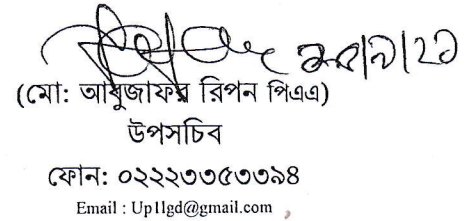 (মো: আবুজাফর রিপন পিএএ)
উপসচিব
ফোন: ০২২২৩৩৫৩৩৯৪
Email : Up1lgd@gmail.com